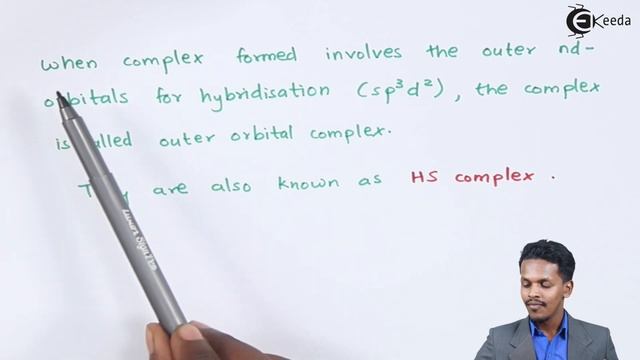 Ekeeda
When complex formed involves the outer nd-
orbitals for hybridisation (sp³d²), the complex
is called outer orbital complex.
They are also known as HS complex.